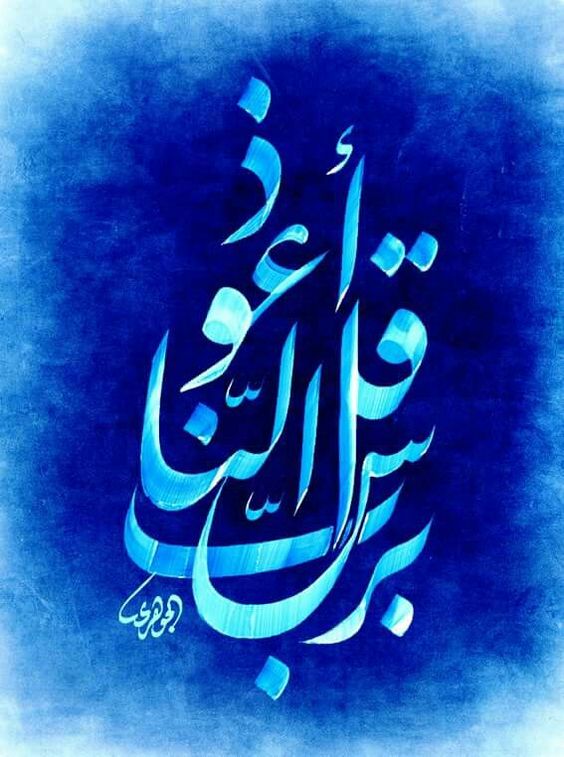 قل أعوذ برب الناس
الجوهري